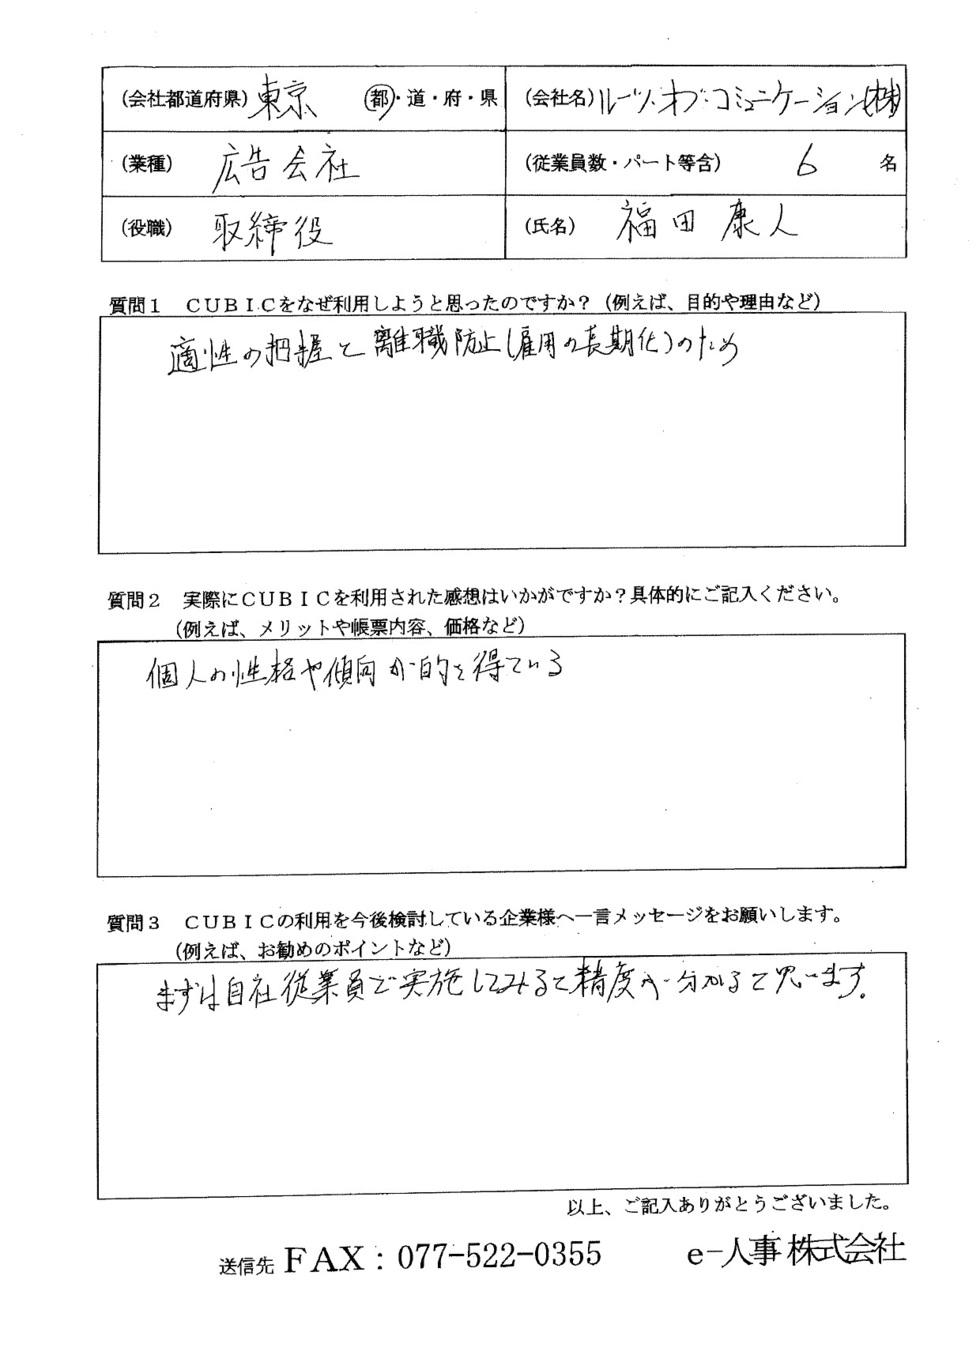 (会社都道府県) 東京 都・道・府・県
(会社名) ルーツ・オブ・コミュニケーション(株)
(業種) 広告会社
(従業員数・パート等含) 6 名
(役職) 取締役
(氏名) 福田康人
質問1 CUBICをなぜ利用しようと思ったのですか?(例えば、目的や理由など)
適性の把握と離職防止(雇用の長期化)のため
質問2 実際にCUBICを利用された感想はいかがですか?具体的にご記入ください。
(例えば、メリットや帳票内容、価格など)
個人の性格や傾向が的を得ている
質問3 CUBICの利用を今後検討している企業様へ一言メッセージをお願いします。
(例えば、お勧めのポイントなど)
まずは自社従業員で実施してみると精度が分かると思います。
以上、ご記入ありがとうございました。
送信先 FAX:077-522-0355 e-人事株式会社